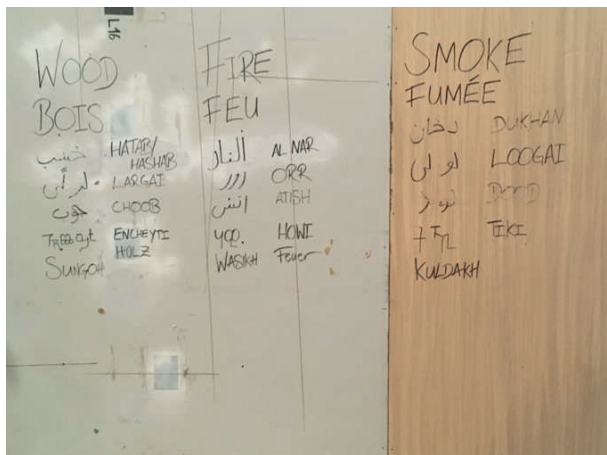 L16
WOOD
BOIS
خشب HATAB/
HASHAB
LARGAI
چوب CHOOB
ENCHEYTI
HOLZ
SUNGOH
FIRE
FEU
النار AL NAR
اور ORR
اتش ATISH
HOWI
WASIKH Feuer
SMOKE
FUMÉE
دخان DUKHAN
LOOGAI
DOOD
TIKI
KULDAKH